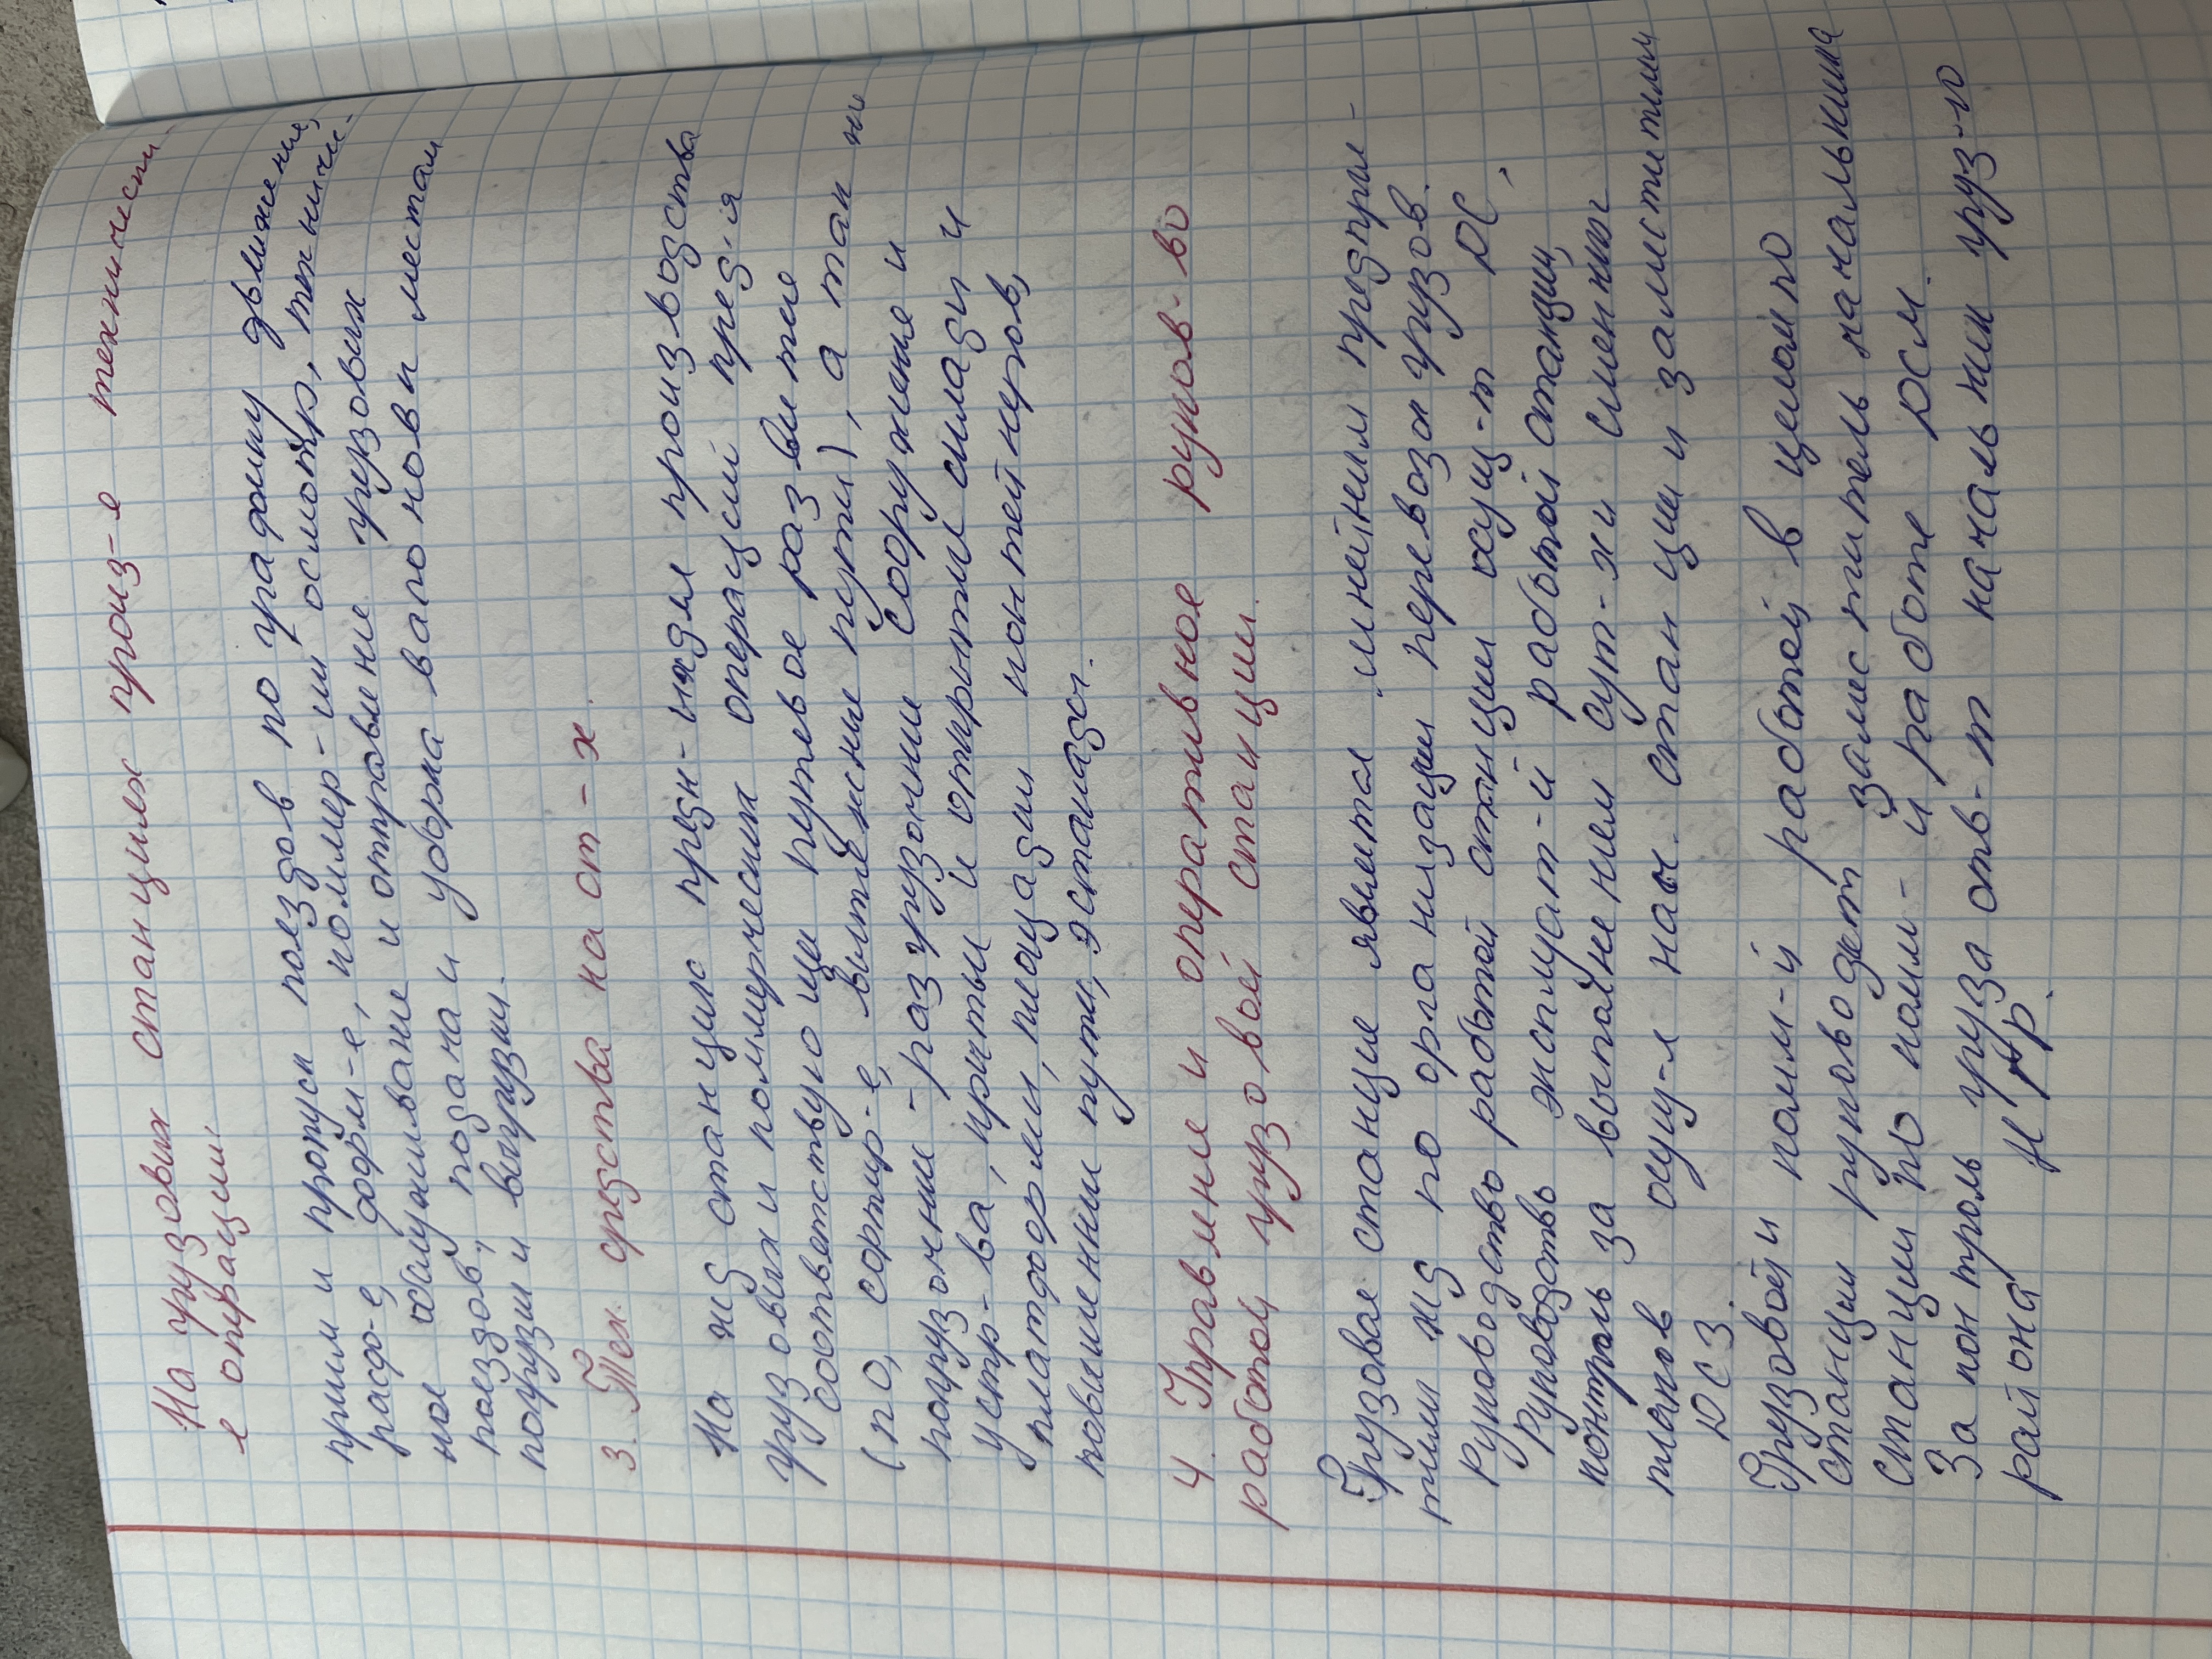 На грузовых станциях произ-е технически
е операции:
прием и пропуск поездов по графику движения,
расф-е, форм-е, коммер-ий осмотр, техниче-
ное обслуживание и отправление грузовых
поездов, подача и уборка вагонов к местам
погрузки и выгрузки.
3. Тех. средства на ст-х.
На жд станциях предн-ых для производства
грузовых и коммерческих операций пред-я
соответствующи путевое развитие
(по, сортир-е, вытяжные пути), а так же
погрузочнии-разгрузочнии сооружение и
устр-ва, крытыи и открытые склады и
платформи, площадки контейнеров,
повышеннии пути, эстакады.
4. Управление и оперативное руков-во
работой грузовой станции.
Грузовая станция является линейним предприя-
тиям жд по организации перевозок грузов.
Руководство работой станции осущ-т ДС,
Руководство эксплуат-й работой станции,
контроль за выполнением сут-х и сменных
планов осущ-я нач. станции и заместители
ДСЗ.
Грузовой и ком-й работой в целом по
станции руководет заместитель начальника
станции по ком-й работе ДСМ.
За контроль груза отв-т начальник груз-го
района НГР.